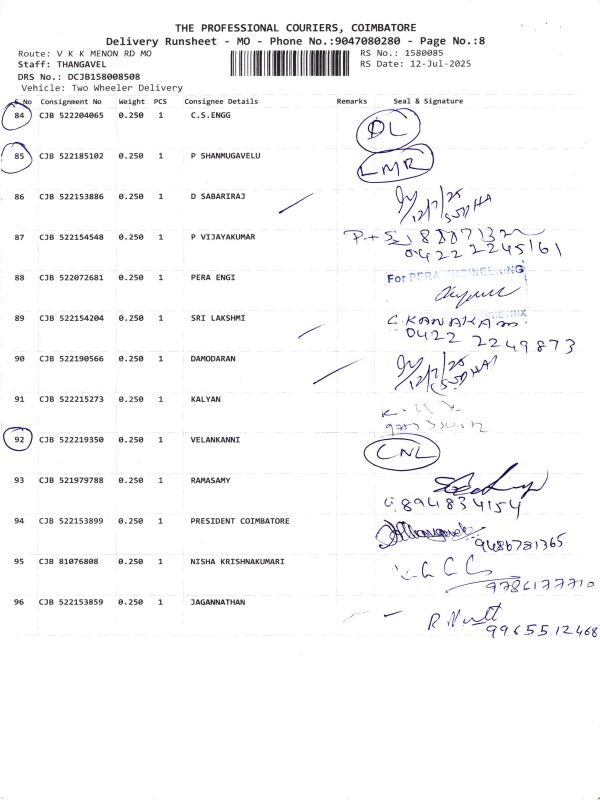 THE PROFESSIONAL COURIERS, COIMBATORE
Delivery Runsheet - MO - Phone No.:9047080280 - Page No.:8
Route: V K K MENON RD MO RS No.: 1580085
Staff: THANGAVEL RS Date: 12-Jul-2025
DRS No.: DCJB158008508
Vehicle: Two Wheeler Delivery
S.No Consignment No Weight PCS Consignee Details Remarks Seal & Signature
84 CJB 522204065 0.250 1 C.S.ENGG DL
85 CJB 522185102 0.250 1 P SHANMUGAVELU LMR
86 CJB 522153886 0.250 1 D SABARIRAJ 12/7/25
87 CJB 522154548 0.250 1 P VIJAYAKUMAR
0422 2245161
88 CJB 522072681 0.250 1 PERA ENGI For PERA ENGINEERING
89 CJB 522154204 0.250 1 SRI LAKSHMI C. KANAKAM
0422 2249873
90 CJB 522190566 0.250 1 DAMODARAN 12/7/25
91 CJB 522215273 0.250 1 KALYAN
92 CJB 522219350 0.250 1 VELANKANNI CNL
93 CJB 521979788 0.250 1 RAMASAMY
894834154
94 CJB 522153899 0.250 1 PRESIDENT COIMBATORE
9486781365
95 CJB 81076808 0.250 1 NISHA KRISHNAKUMARI
9786177710
96 CJB 522153859 0.250 1 JAGANNATHAN
9965512468